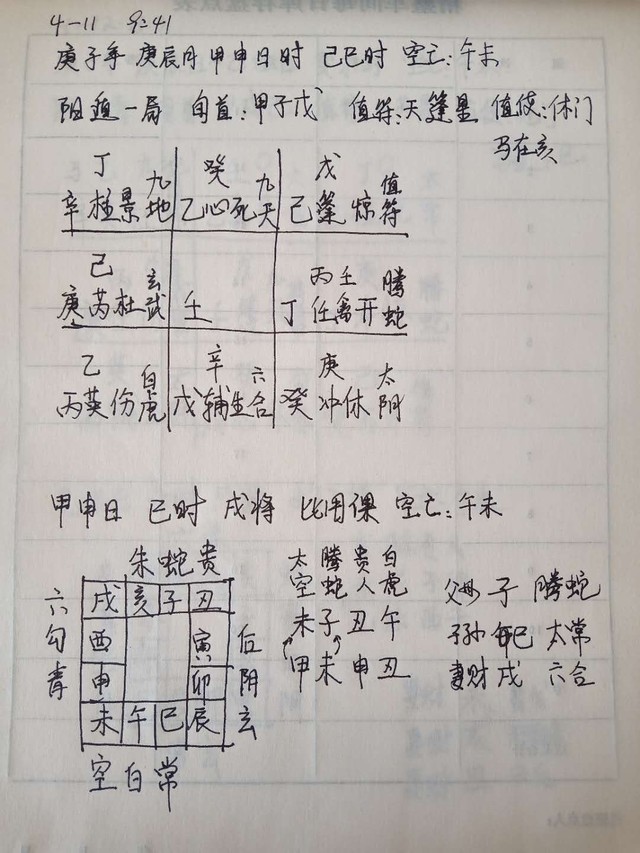 4-11 9:41
庚子年 庚辰月 甲申日时 己巳时 空亡:午未
阳遁一局 旬首:甲子戊 值符:天篷星 值使:休门
马在亥
丁 癸 戊
九地 九天 值符
辛柱景 乙心死 己篷惊
己 丙壬
玄武 腾蛇
庚芮杜 壬 丁任离开
乙 辛 庚
白虎 六合 太阴
丙英伤 戊辅生 癸冲休
甲申日 巳时 戌将 比用课 空亡:午未
朱蛇贵
六勾青
戌亥子丑
酉 寅
申 卯
未午巳辰
后阴玄
空白常
太 腾 贵 白
空 蛇 人 虎
未 子 丑 午
甲 未 申 丑
父母 子 腾蛇
子孙 巳 太常
妻财 戌 六合